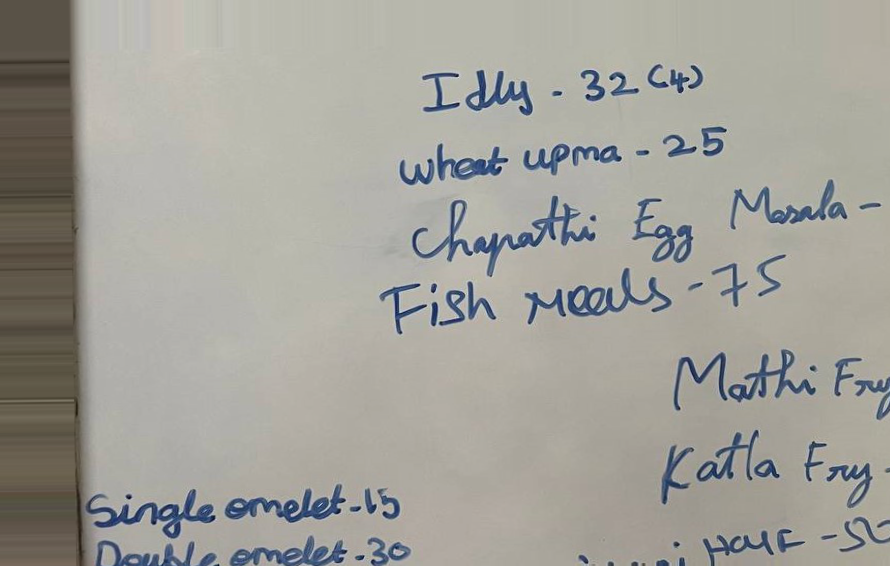 Idly - 32 (4)
wheat upma - 25
Chapathi Egg Masala -
Fish meals - 75
Mathi Fry
Katla Fry -
Single omelet - 15
Double omelet - 30
Half -